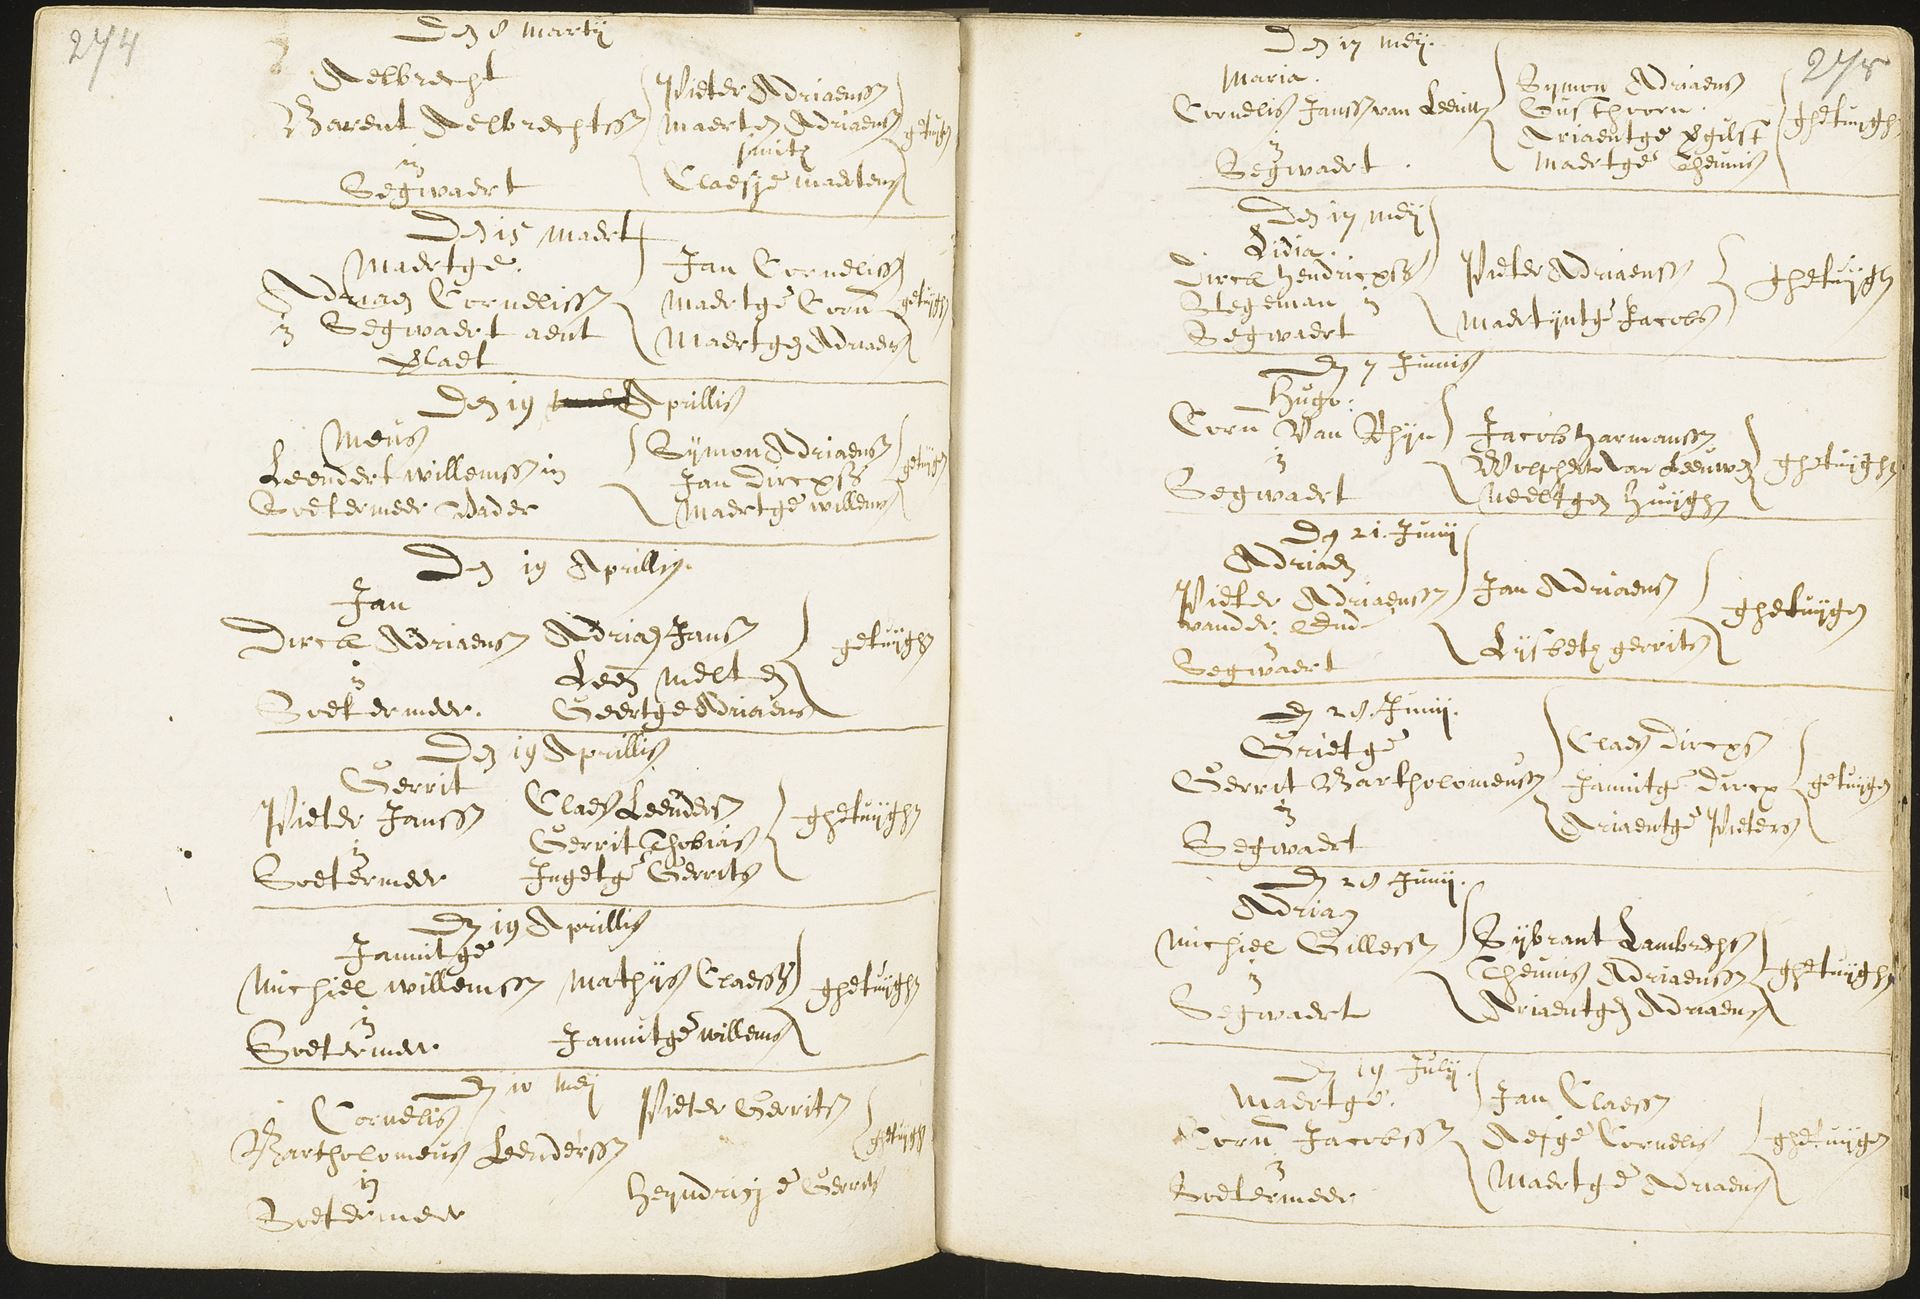 274
Den 8 Martij
Aelbrecht
Barent Aelbrechtss
in
Segwaert
Pieter Adriaenss
Maerten Adriaens
smitz
Claesje Maertens
getuygen
Den 15 Maert
Maertge.
Adriaen Corneliss
in Segwaert aent
Jan Corneliss
Maertge Corn
Maertgen Adriaens
getuygen
Den 19 Aprillis
Meus
Leendert willemss in
Soetermeer Vader
Symon Adriaens
Jan Dircxss
Maertge willems
getuygen
Den 19 Aprillis.
Jan
Dirck Adriaens
in
Soetermeer.
Adriaen Jans
Leen Melten
Geertge Adriaens
getuijgh
Den 19 Aprillis
Gerrit
Pieter Janss
in
Soetermeer
Claes Leenders
Gerrit Thobias
Ingetge Gerrits
ghetuijghen
Den 19 Aprillis
Jannitge
Michiel willemss
in
Soetermeer
Mathijs Claess
Jannitge willems
ghetuijghen
Den 10 Mey
Cornelis
Bartholomeus Leenderss
in
Soetermeer
Pieter Gerrits
Heyndricje Gerrits
getuijgh
275
Den 17 Meij.
Maria.
Cornelis Janss van Leeuw
in
Segwaert.
Symon Adriaens
Gusthoorn.
Ariaentge
Maertge Theunis
ghetuijgh
Den 17 Meij
Lidia.
Dirck Hendricxss
Stegeman in
Segwaert
Pieter Adriaenss
Maertijntge Jacobs
ghetuijgh
Den 7 Junius
Hugo.
Corn Van Rhijn
in
Segwaert
Jacob Harmanss
Wolphert van Leeuwen
Neeltgen Huijghen
ghetuijghen
Den 21 Junij
Adriaen
Pieter Adriaenss
vander
in
Segwaert
Jan Adriaens
Lijsbetz gerrits
ghetuijgen
Den 28 Junij.
Grietge
Gerrit Bartholomeuss
in
Segwaert
Claes Dircxs
Jannitge Dircx
Ariaentge Pieters
getuijgen
Den 28 Junij.
Adriaen
Michiel Gilless
in
Segwaert
Sybrant Lambrechs
Theunis Adriaenss
Ariaentgen Adriaens
ghetuijghen
Den 19 Julij.
Maertge.
Corn Jacobss
in
Soetermeer
Jan Claess
Aefge Cornelis
Maertge Adriaens
ghetuijgen